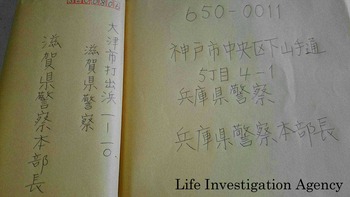 大津市打出浜一ー一〇
滋賀県警察
滋賀県警察本部長
650-0011
神戸市中央区下山手通
5丁目4-1
兵庫県警察
兵庫県警察本部長
Life Investigation Agency